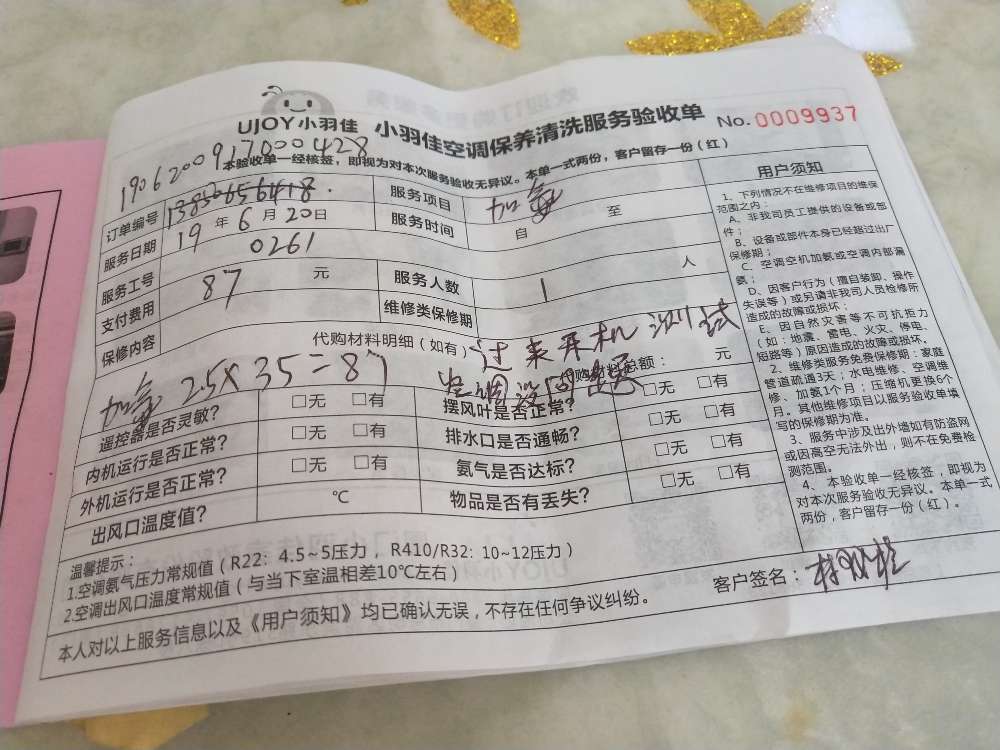 UJOY小羽佳 小羽佳空调保养清洗服务验收单 No.0009937
本验收单一经核签，即视为对本次服务验收无异议。本单一式两份，客户留存一份（红）
1906200917000428
订单编号 13850656418. 服务项目 加氨
服务日期 19年6月20日 服务时间 自 至
服务工号 0261
支付费用 87 元 服务人数 1 人
保修内容 维修类保修期
代购材料明细（如有） 过来开机测试
空调没问题
代购材料总额： 元
加氨 2.5X35=87
遥控器是否灵敏？ □无 □有 摆风叶是否正常？ □无 □有
内机运行是否正常？ □无 □有 排水口是否通畅？ □无 □有
外机运行是否正常？ □无 □有 氨气是否达标？ □无 □有
出风口温度值？ ℃ 物品是否有丢失？ □无 □有
温馨提示：
1.空调氨气压力常规值（R22：4.5~5压力，R410/R32：10~12压力）
2.空调出风口温度常规值（与当下室温相差10℃左右）
本人对以上服务信息以及《用户须知》均已确认无误，不存在任何争议纠纷。
客户签名：
用户须知
1、下列情况不在维修项目的维保
范围之内：
A、非我司员工提供的设备或部
件；
B、设备或部件本身已经超过出厂
保修期；
C、空调空机加氨或空调内部漏
氨；
D、因客户行为（擅自装卸、操作
失误等）或另请非我司人员检修所
造成的故障或损坏；
E、因自然灾害等不可抗拒力
（如：地震、雷电、火灾、停电、
短路等）原因造成的故障或损坏。
2、维修类服务免费保修期：家庭
管道疏通3天；水电维修、空调维
修、加氨1个月；压缩机更换6个
月。其他维修项目以服务验收单填
写的保修期为准。
3、服务中涉及出外墙如有防盗网
或因高空无法外出，则不在免费检
测范围。
4、本验收单一经核签，即视为
对本次服务验收无异议。本单一式
两份，客户留存一份（红）。